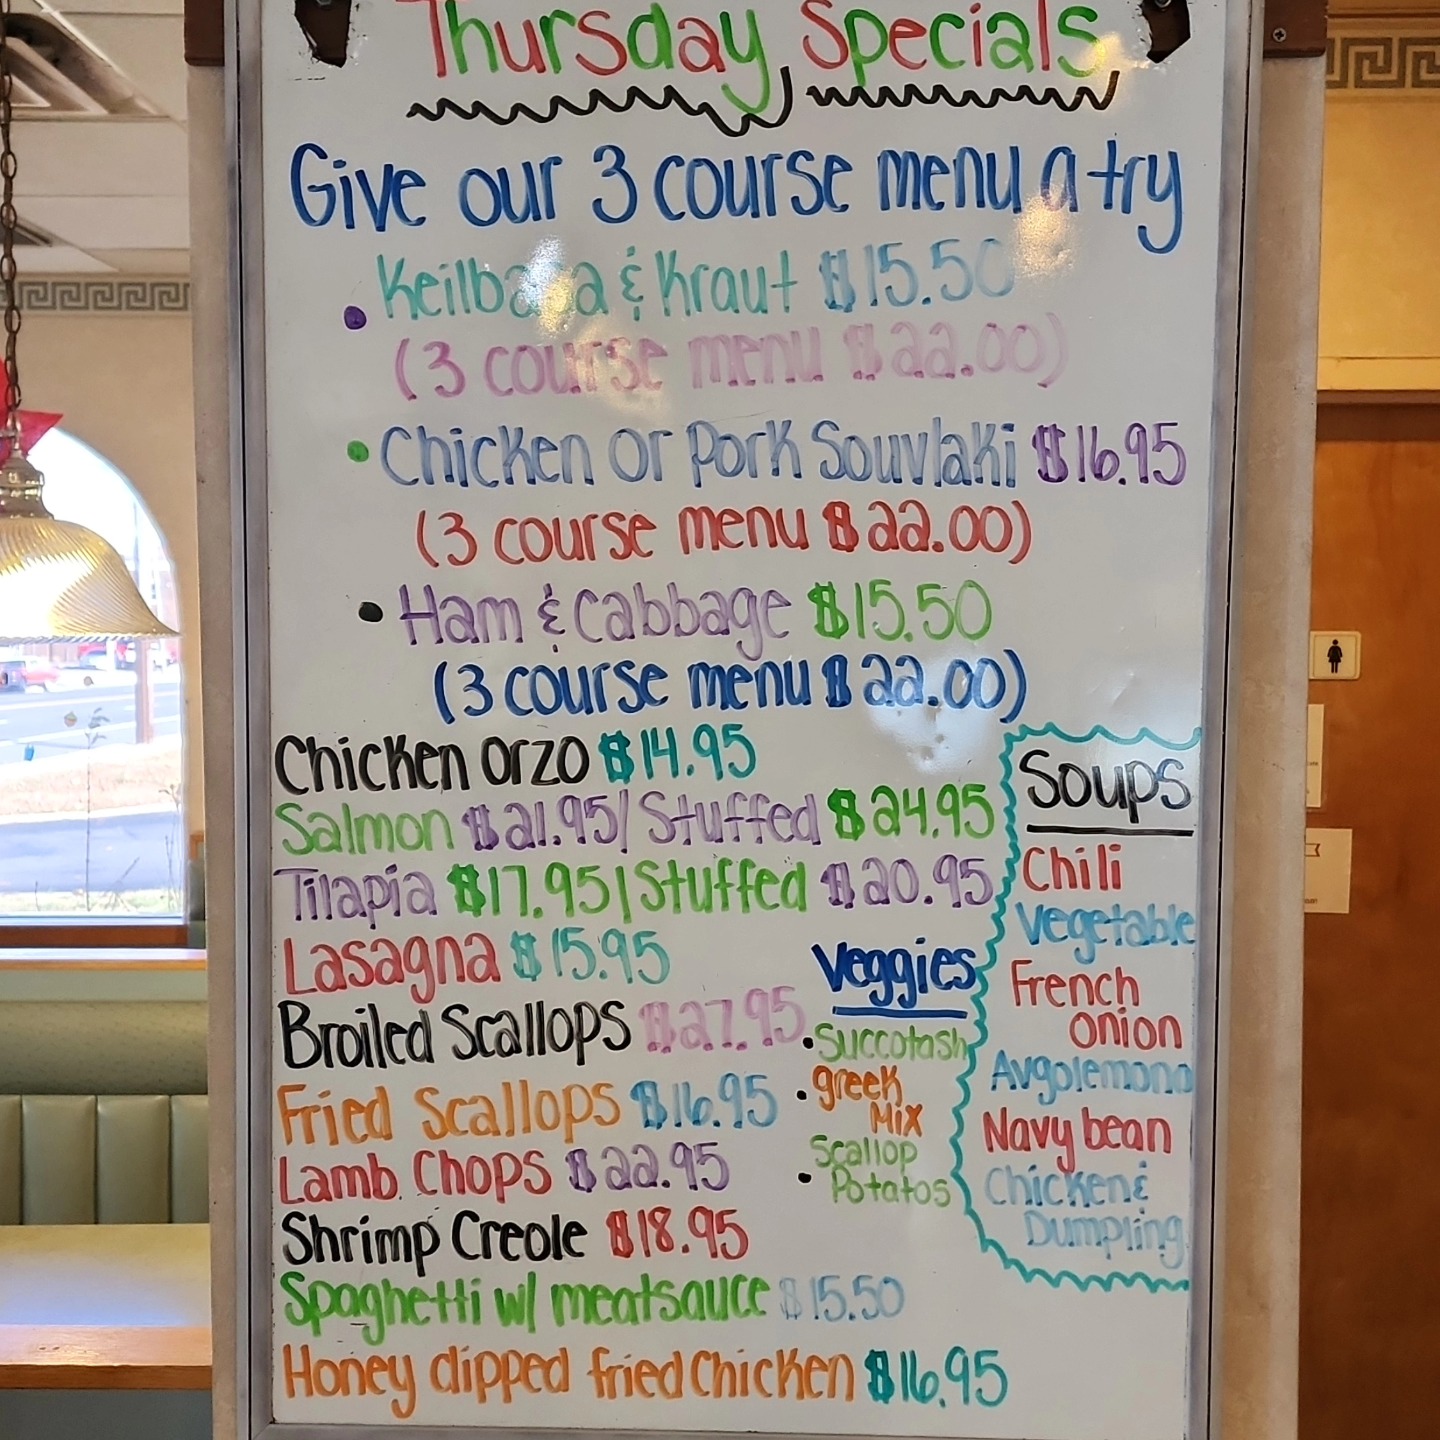 Thursday Specials
Give our 3 course menu a try
& Kraut $15.50
(3 course menu $22.00)
• Chicken or Pork Souvlaki $16.95
(3 course menu $22.00)
• Ham & Cabbage $15.50
(3 course menu $22.00)
Chicken orzo $14.95
Salmon $21.95/Stuffed $24.95
Tilapia $17.95/Stuffed $20.95
Lasagna $15.95
Broiled Scallops $27.95
Fried Scallops $16.95
Lamb Chops $22.95
Shrimp Creole $18.95
Spaghetti w/ meatsauce $15.50
Honey dipped fried Chicken $16.95
Veggies
• Succotash
• greek
Mix
Scallop
• Potatos
Soups
Chili
Vegetable
French
onion
Avgolemono
Navy bean
Chicken &
Dumpling